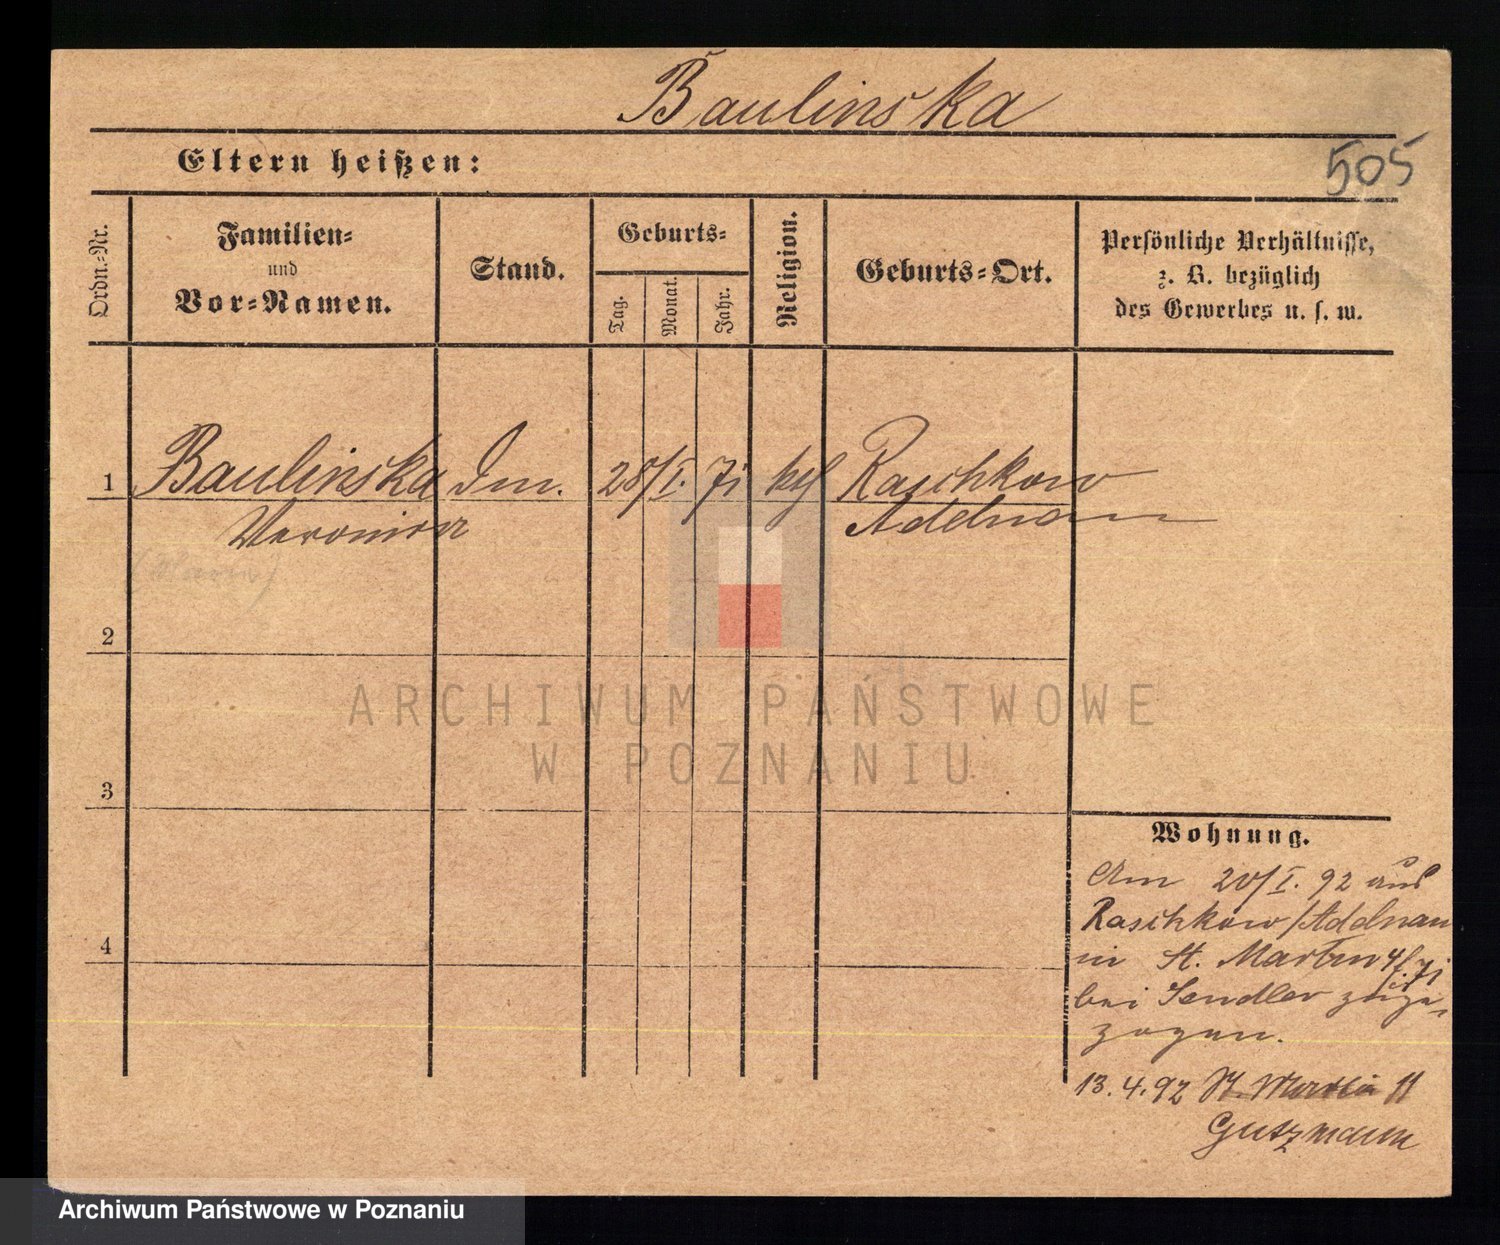 Baulinska
Eltern heißen:
505
Ordn.-Nr.
Familien-
und
Vor-Namen.
Stand.
Geburts-
Tag.
Monat.
Jahr.
Religion.
Geburts-Ort.
Persönliche Verhältnisse,
z. B. bezüglich
des Gewerbes u. s. w.
1 Baulinska 28/I. 71 kth Raschkow
Veronica Adelnau
2
3
4
Wohnung.
Am 20/I. 92 aus
Raschkow/Adelnau
in St. Martin
bei Sendler zuge-
zogen.
13.4.92 St. Martin 11
Gutzmann
ARCHIWUM PAŃSTWOWE
W POZNANIU
Archiwum Państwowe w Poznaniu